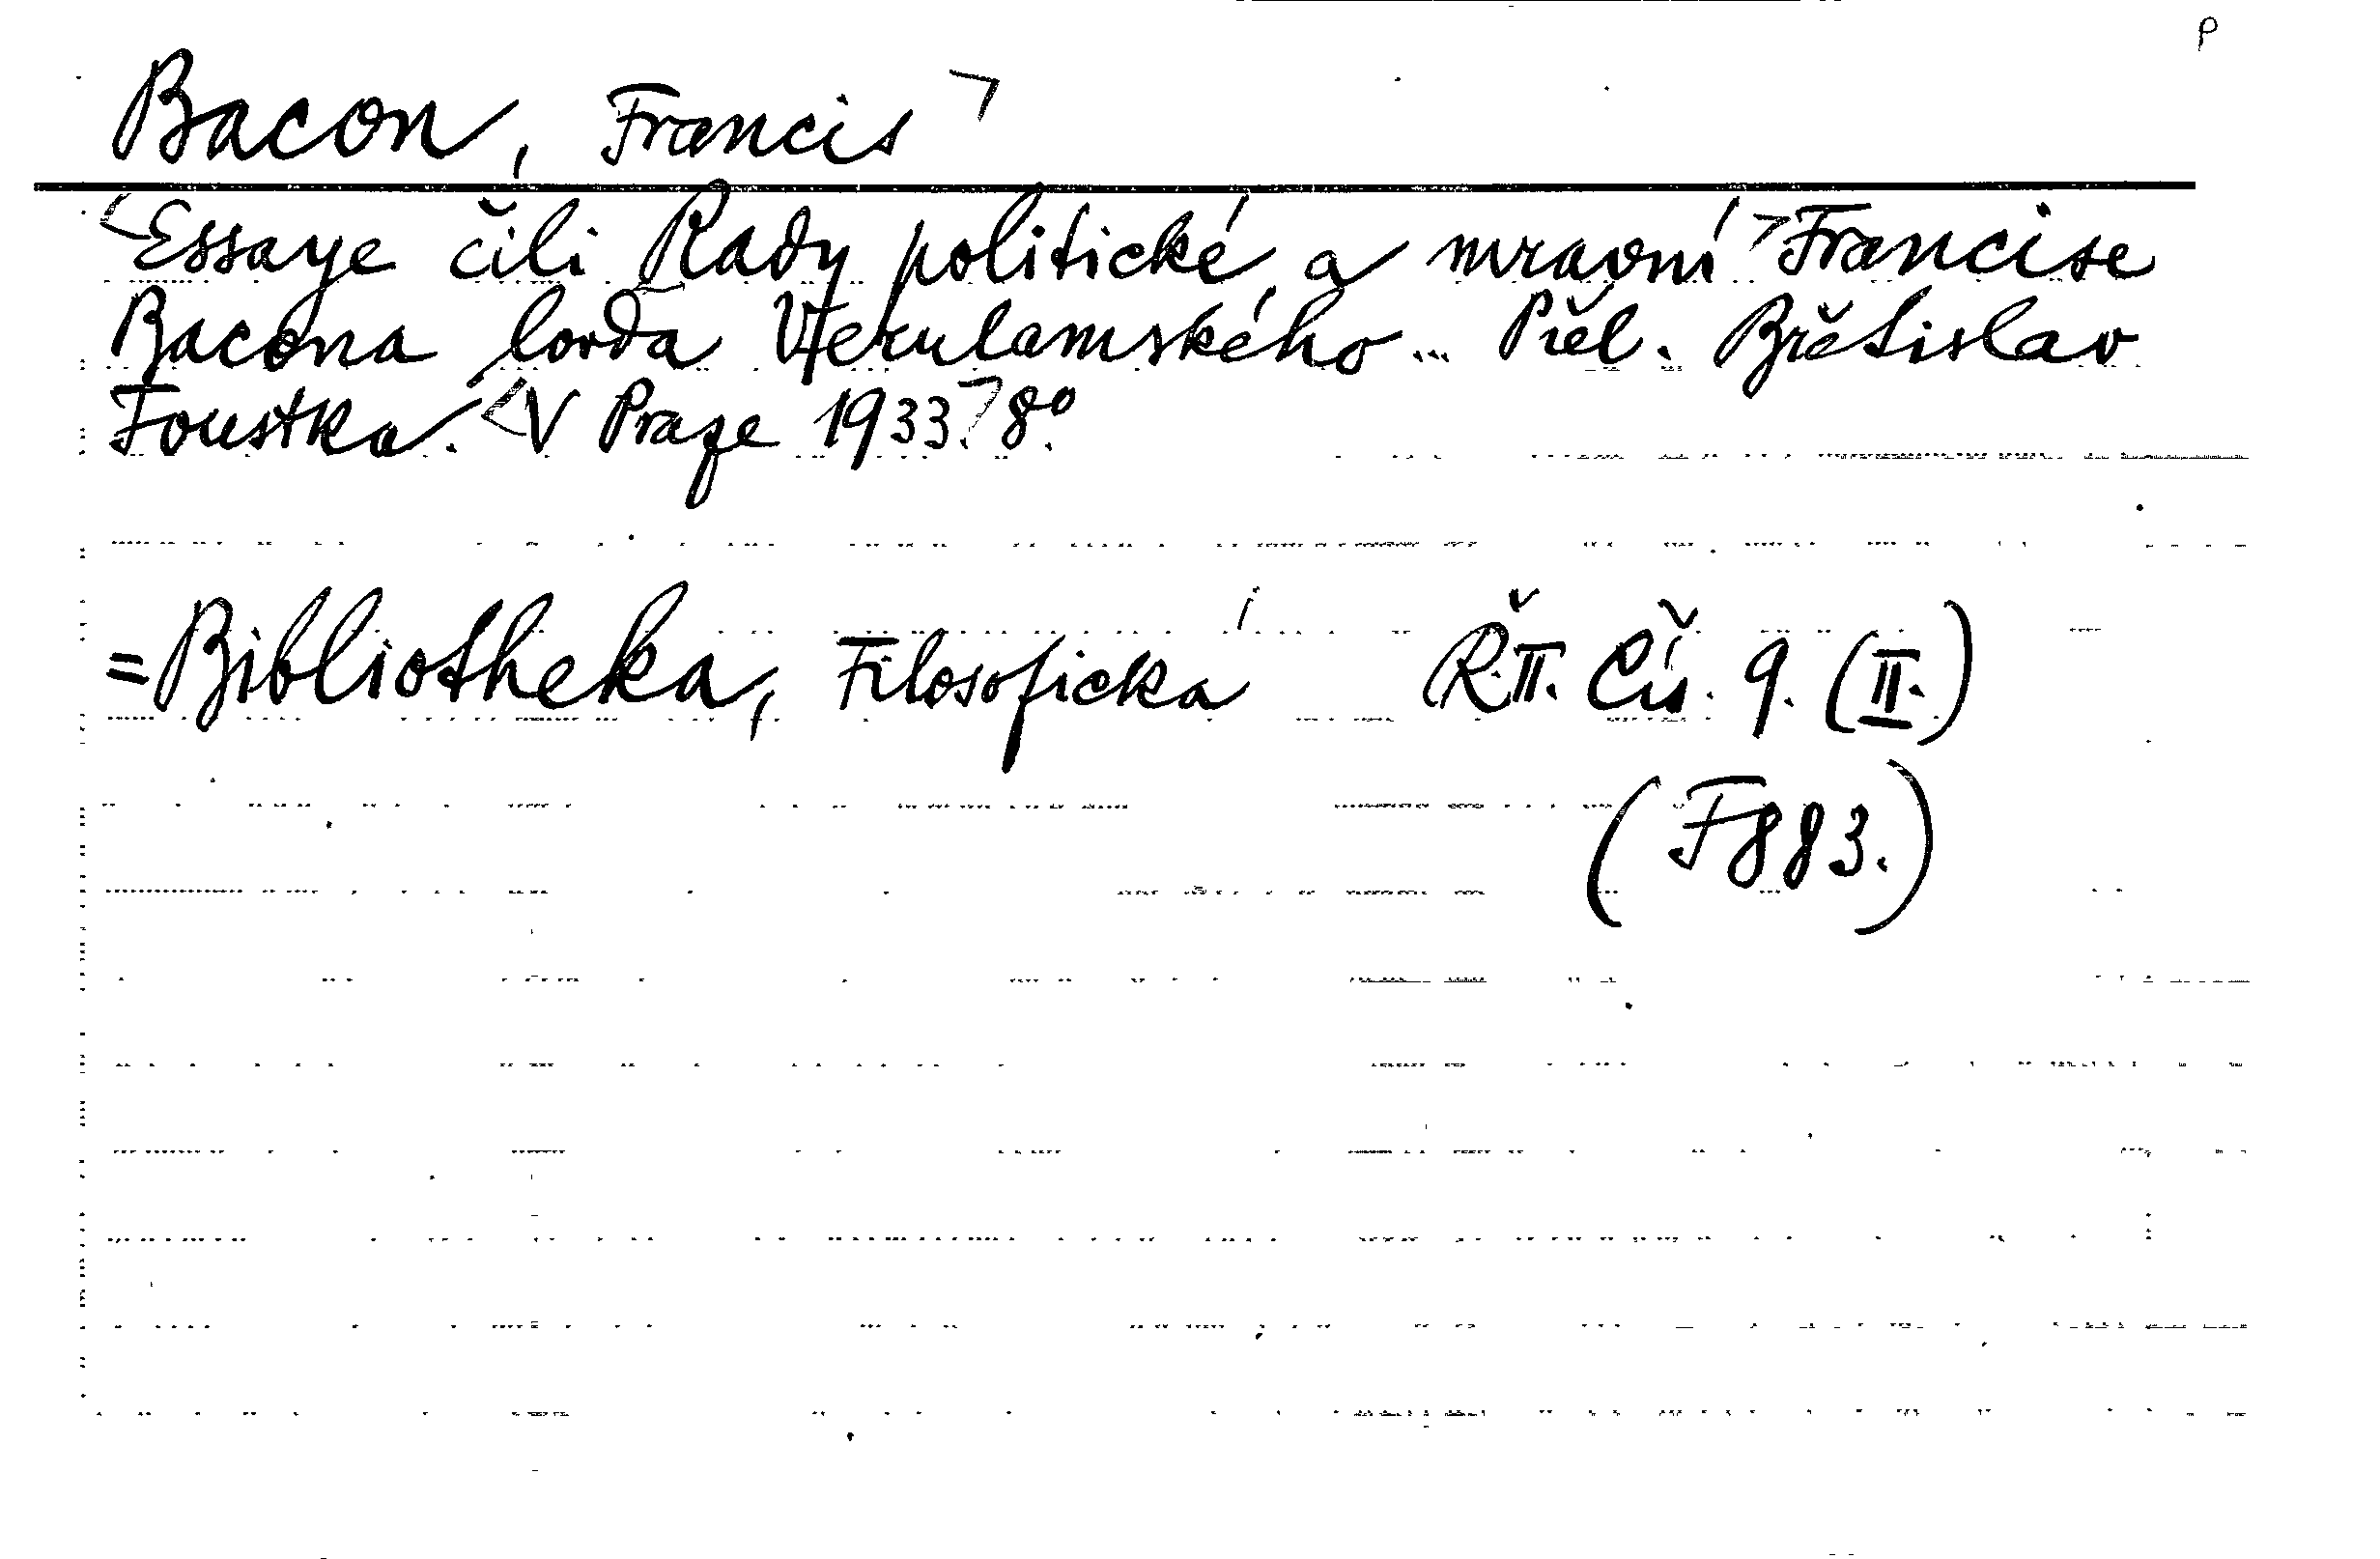 ρ
Bacon, Francis
Essaye čili Rady politické a mravní Francise
Bacona lorda Verulamského... Přel. Břetislav
Foustka. V Praze 1933. 8°.
=Bibliotheka, Filosofická Ř.II. Čís. 9. (II.)
(F883.)